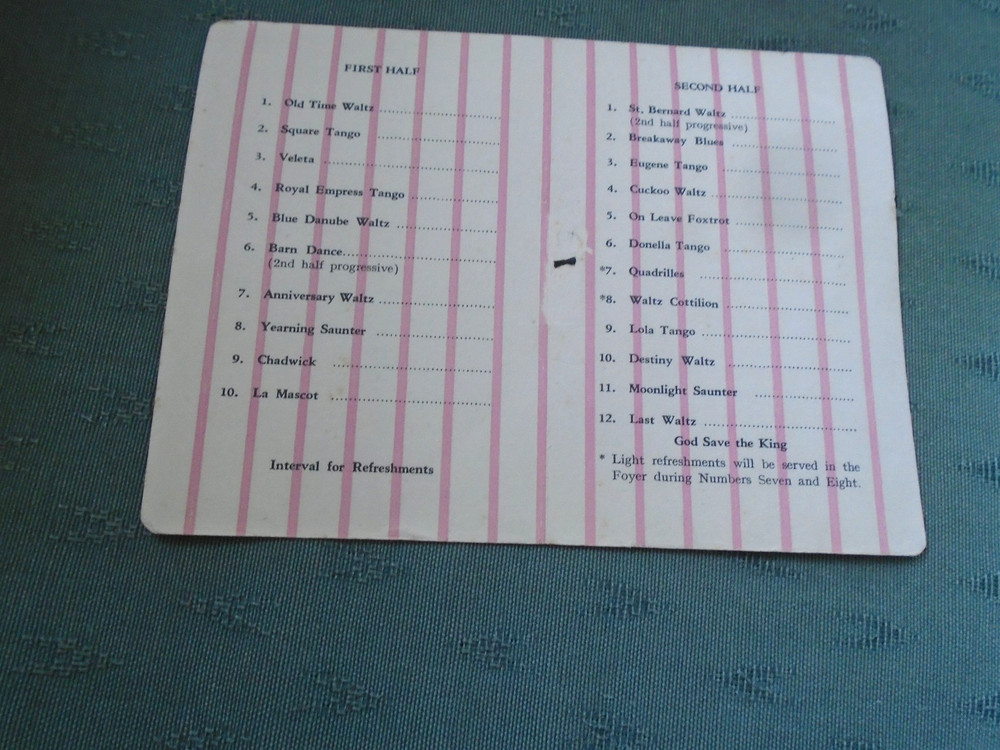 FIRST HALF
1. Old Time Waltz
2. Square Tango
3. Veleta
4. Royal Empress Tango
5. Blue Danube Waltz
6. Barn Dance
(2nd half progressive)
7. Anniversary Waltz
8. Yearning Saunter
9. Chadwick
10. La Mascot
Interval for Refreshments
SECOND HALF
1. St. Bernard Waltz
(2nd half progressive)
2. Breakaway Blues
3. Eugene Tango
4. Cuckoo Waltz
5. On Leave Foxtrot
6. Donella Tango
*7. Quadrilles
*8. Waltz Cottilion
9. Lola Tango
10. Destiny Waltz
11. Moonlight Saunter
12. Last Waltz
God Save the King
* Light refreshments will be served in the
Foyer during Numbers Seven and Eight.